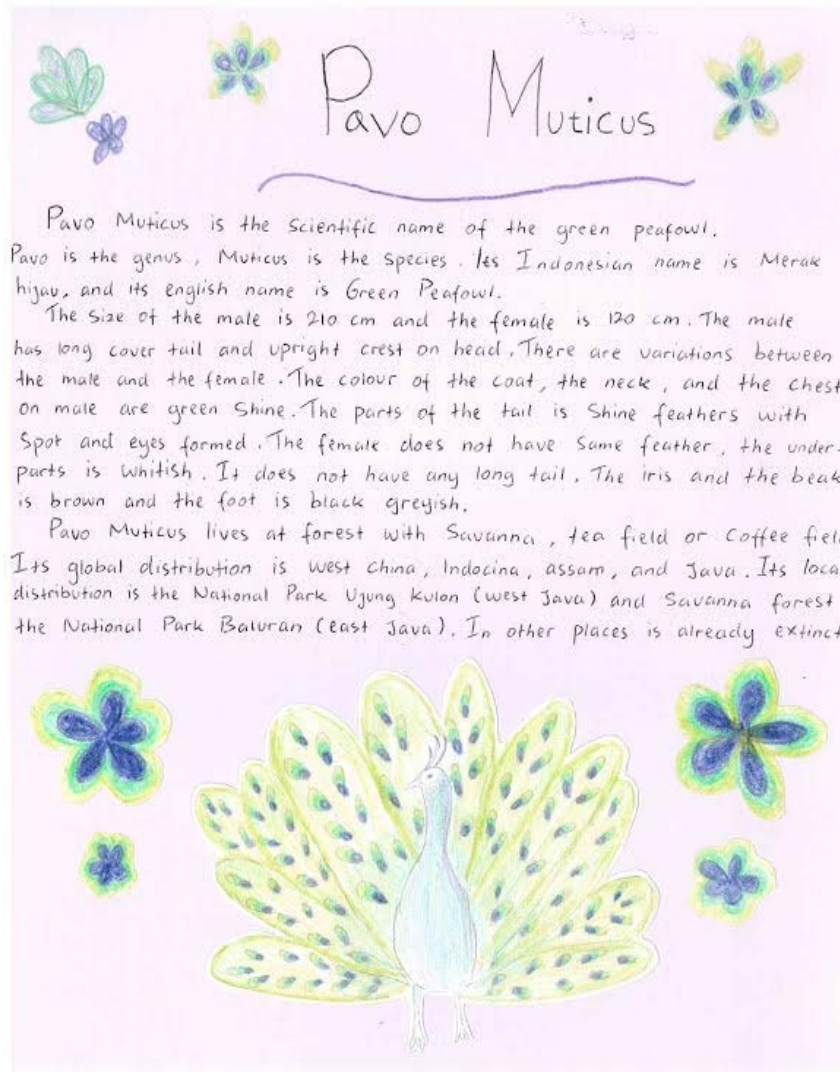 Pavo Muticus
Pavo Muticus is the scientific name of the green peafowl.
Pavo is the genus, Muticus is the species. Its Indonesian name is Merak
hijau, and its english name is Green Peafowl.
The size of the male is 210 cm and the female is 120 cm. The male
has long cover tail and upright crest on head. There are variations between
the male and the female. The colour of the coat, the neck, and the chest
on male are green shine. The parts of the tail is shine feathers with
spot and eyes formed. The female does not have same feather, the under-
parts is whitish. It does not have any long tail. The iris and the beak
is brown and the foot is black greyish.
Pavo Muticus lives at forest with Savanna, tea field or coffee field
Its global distribution is west china, Indocina, assam, and Java. Its loca
distribution is the National Park Ujung Kulon (west Java) and Savanna forest
the National Park Baluran (east Java). In other places is already extinct